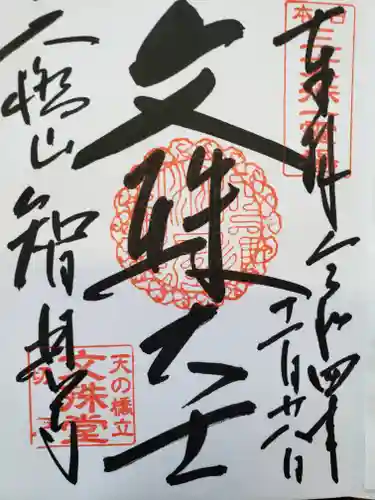 奉拝 令和四年
十一月廿八日
文殊大士
天橋山
智恩寺
天の橋立
文殊堂